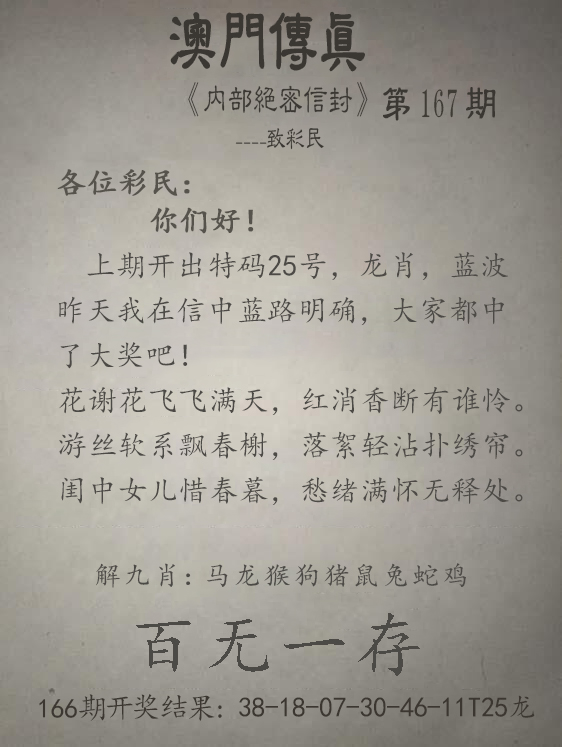 澳門傳眞
《内部絕密信封》第167期
----致彩民
各位彩民：
你们好！
上期开出特码25号，龙肖，蓝波
昨天我在信中蓝路明确，大家都中
了大奖吧！
花谢花飞飞满天，红消香断有谁怜。
游丝软系飘春榭，落絮轻沾扑绣帘。
闺中女儿惜春暮，愁绪满怀无释处。
解九肖：马龙猴狗猪鼠兔蛇鸡
百无一存
166期开奖结果：38-18-07-30-46-11T25龙